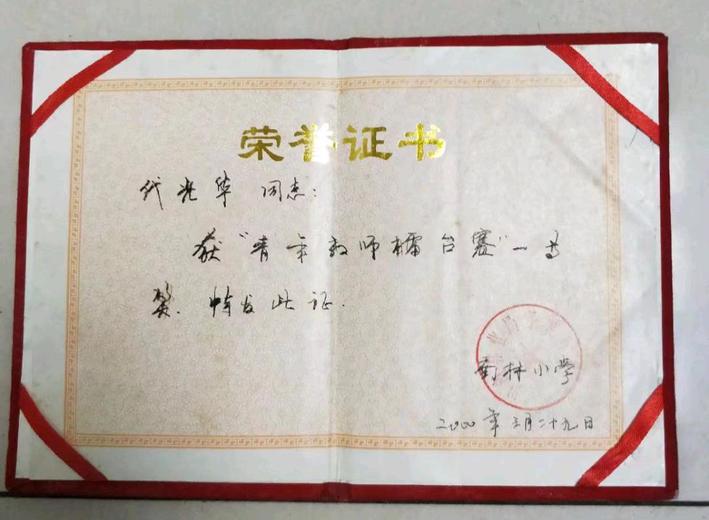 荣誉证书
代光华 同志:
获"青年教师擂台赛"一等
奖. 特发此证.
南林小学
二000年三月二十九日